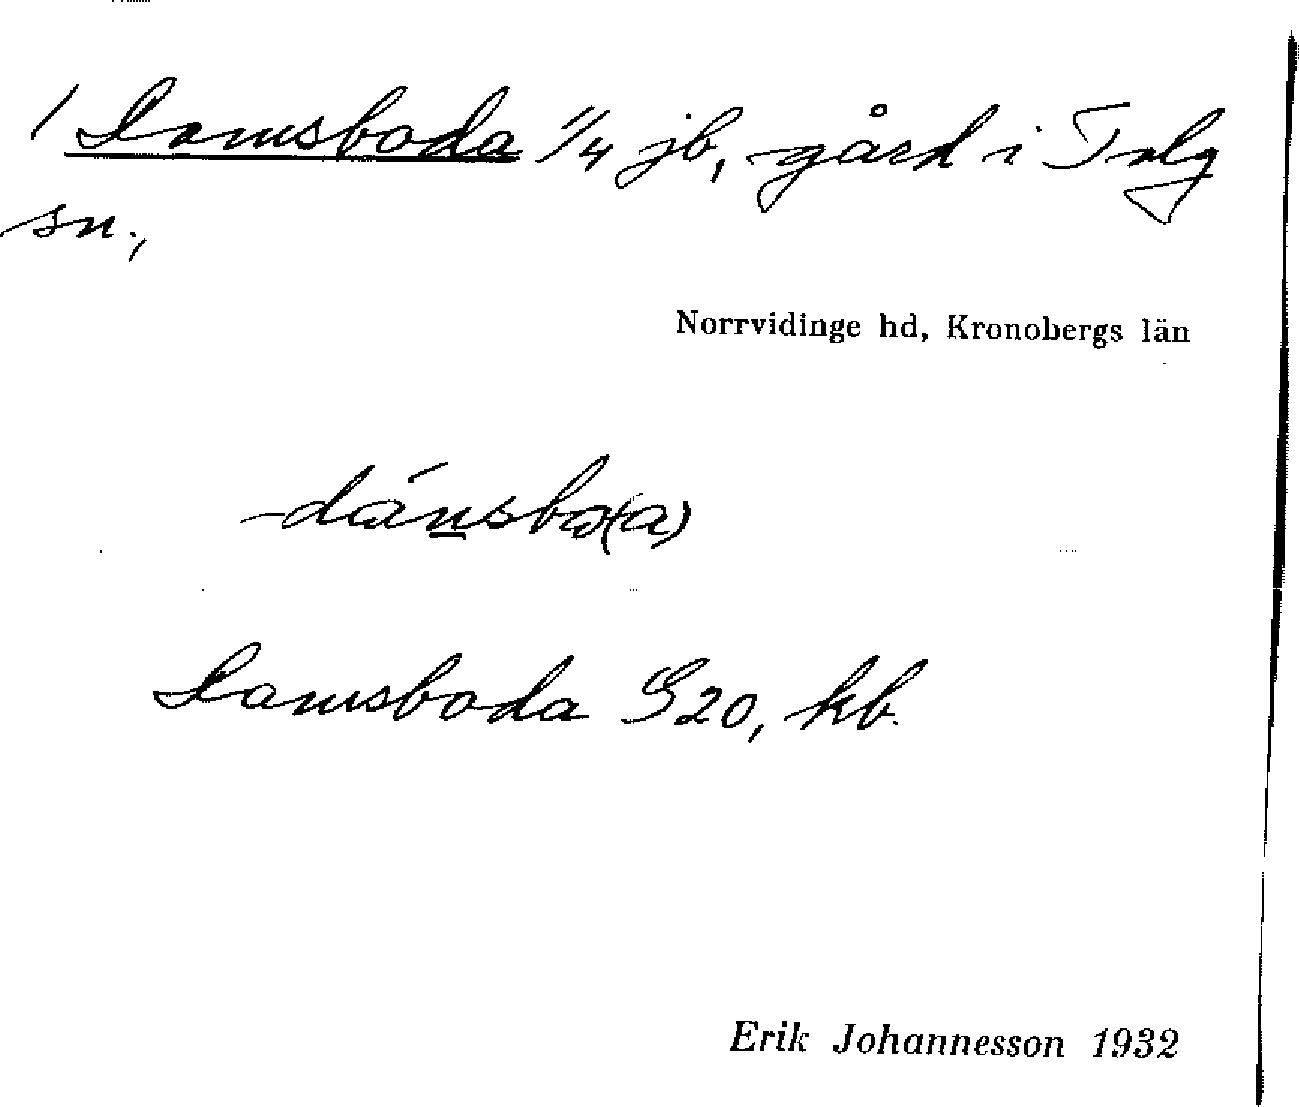 1 Lamsboda 1/4 jb, gård i Tolg
sn.,
Norrvidinge hd, Kronobergs län
Lamsboda S20, kb.
Erik Johannesson 1932